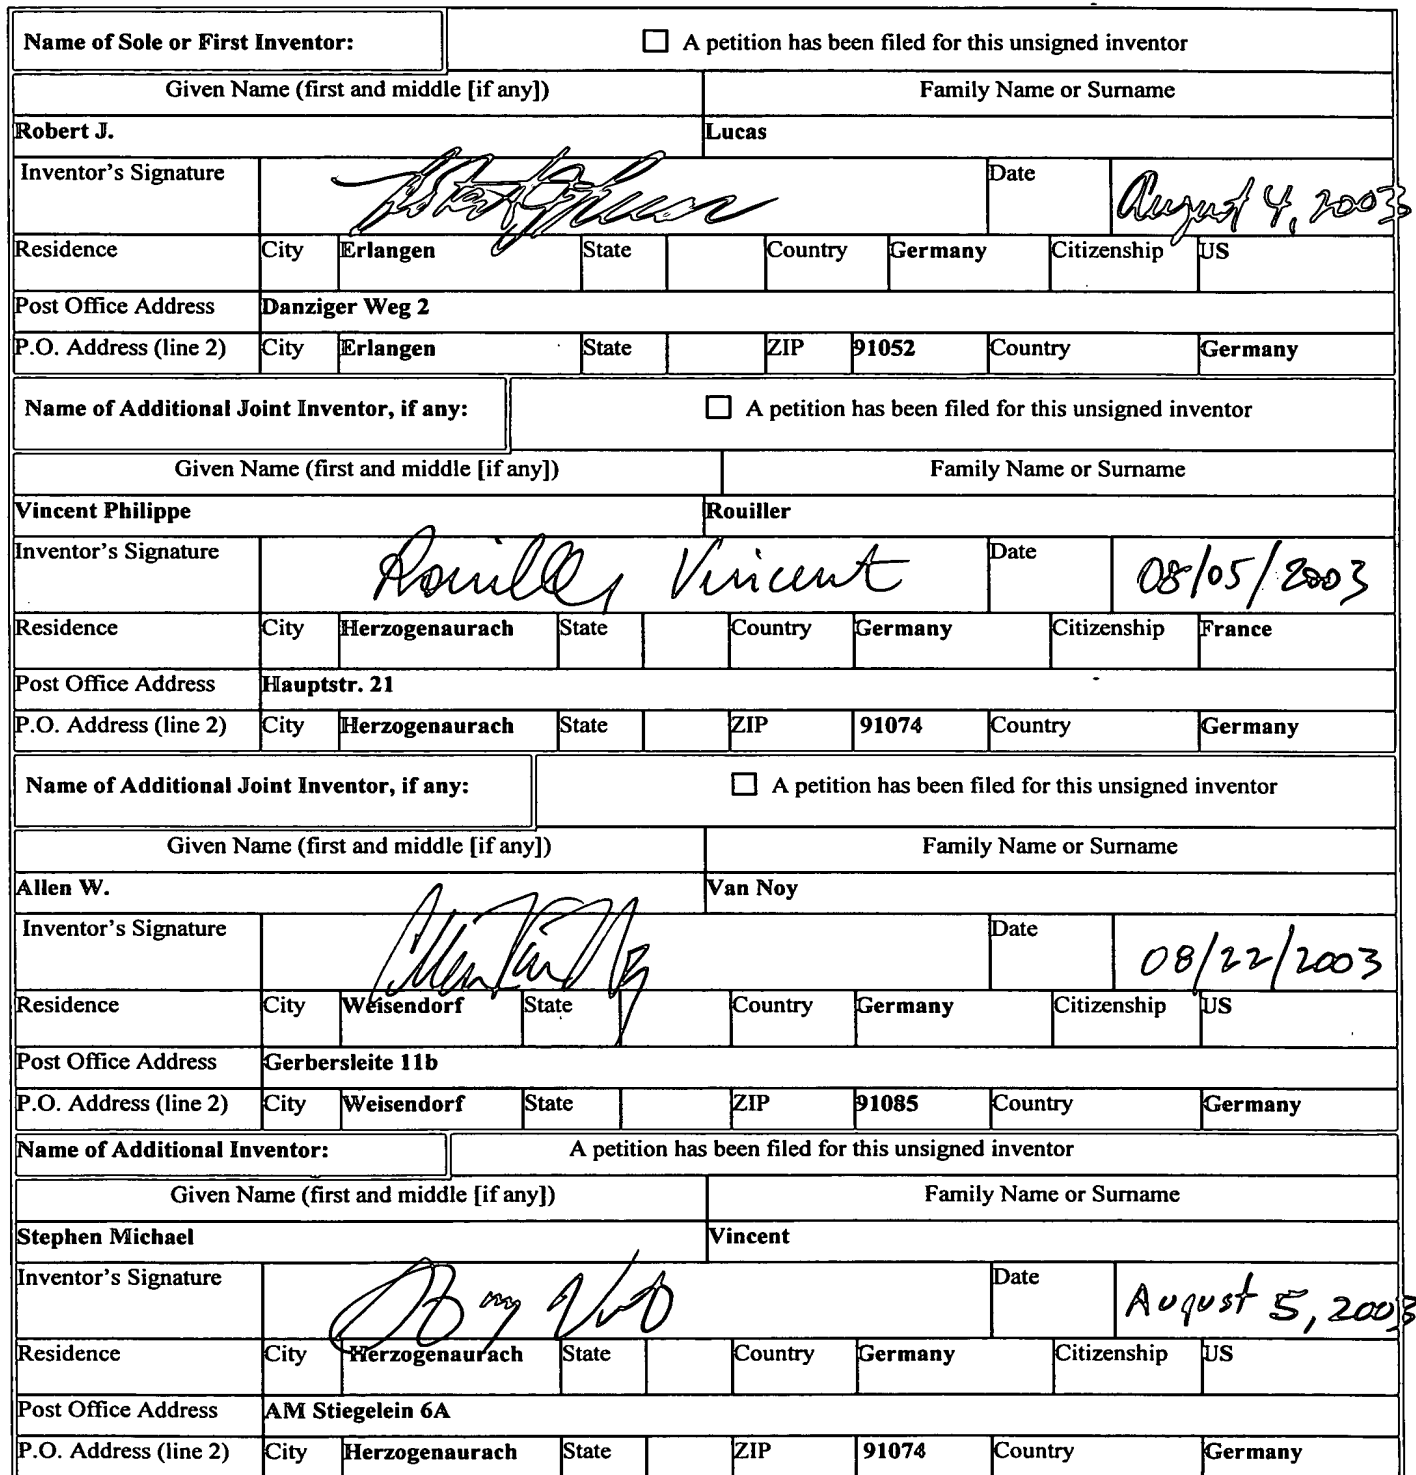 Name of Sole or First Inventor: ☐ A petition has been filed for this unsigned inventor
Given Name (first and middle [if any]) Family Name or Surname
Robert J. Lucas
Inventor's Signature Date August 4, 2003
Residence City Erlangen State Country Germany Citizenship US
Post Office Address Danziger Weg 2
P.O. Address (line 2) City Erlangen State ZIP 91052 Country Germany
Name of Additional Joint Inventor, if any: ☐ A petition has been filed for this unsigned inventor
Given Name (first and middle [if any]) Family Name or Surname
Vincent Philippe Rouiller
Inventor's Signature Rouiller Vincent Date 08/05/2003
Residence City Herzogenaurach State Country Germany Citizenship France
Post Office Address Hauptstr. 21
P.O. Address (line 2) City Herzogenaurach State ZIP 91074 Country Germany
Name of Additional Joint Inventor, if any: ☐ A petition has been filed for this unsigned inventor
Given Name (first and middle [if any]) Family Name or Surname
Allen W. Van Noy
Inventor's Signature Date 08/22/2003
Residence City Weisendorf State Country Germany Citizenship US
Post Office Address Gerbersleite 11b
P.O. Address (line 2) City Weisendorf State ZIP 91085 Country Germany
Name of Additional Inventor: A petition has been filed for this unsigned inventor
Given Name (first and middle [if any]) Family Name or Surname
Stephen Michael Vincent
Inventor's Signature Date August 5, 2003
Residence City Herzogenaurach State Country Germany Citizenship US
Post Office Address AM Stiegelein 6A
P.O. Address (line 2) City Herzogenaurach State ZIP 91074 Country Germany